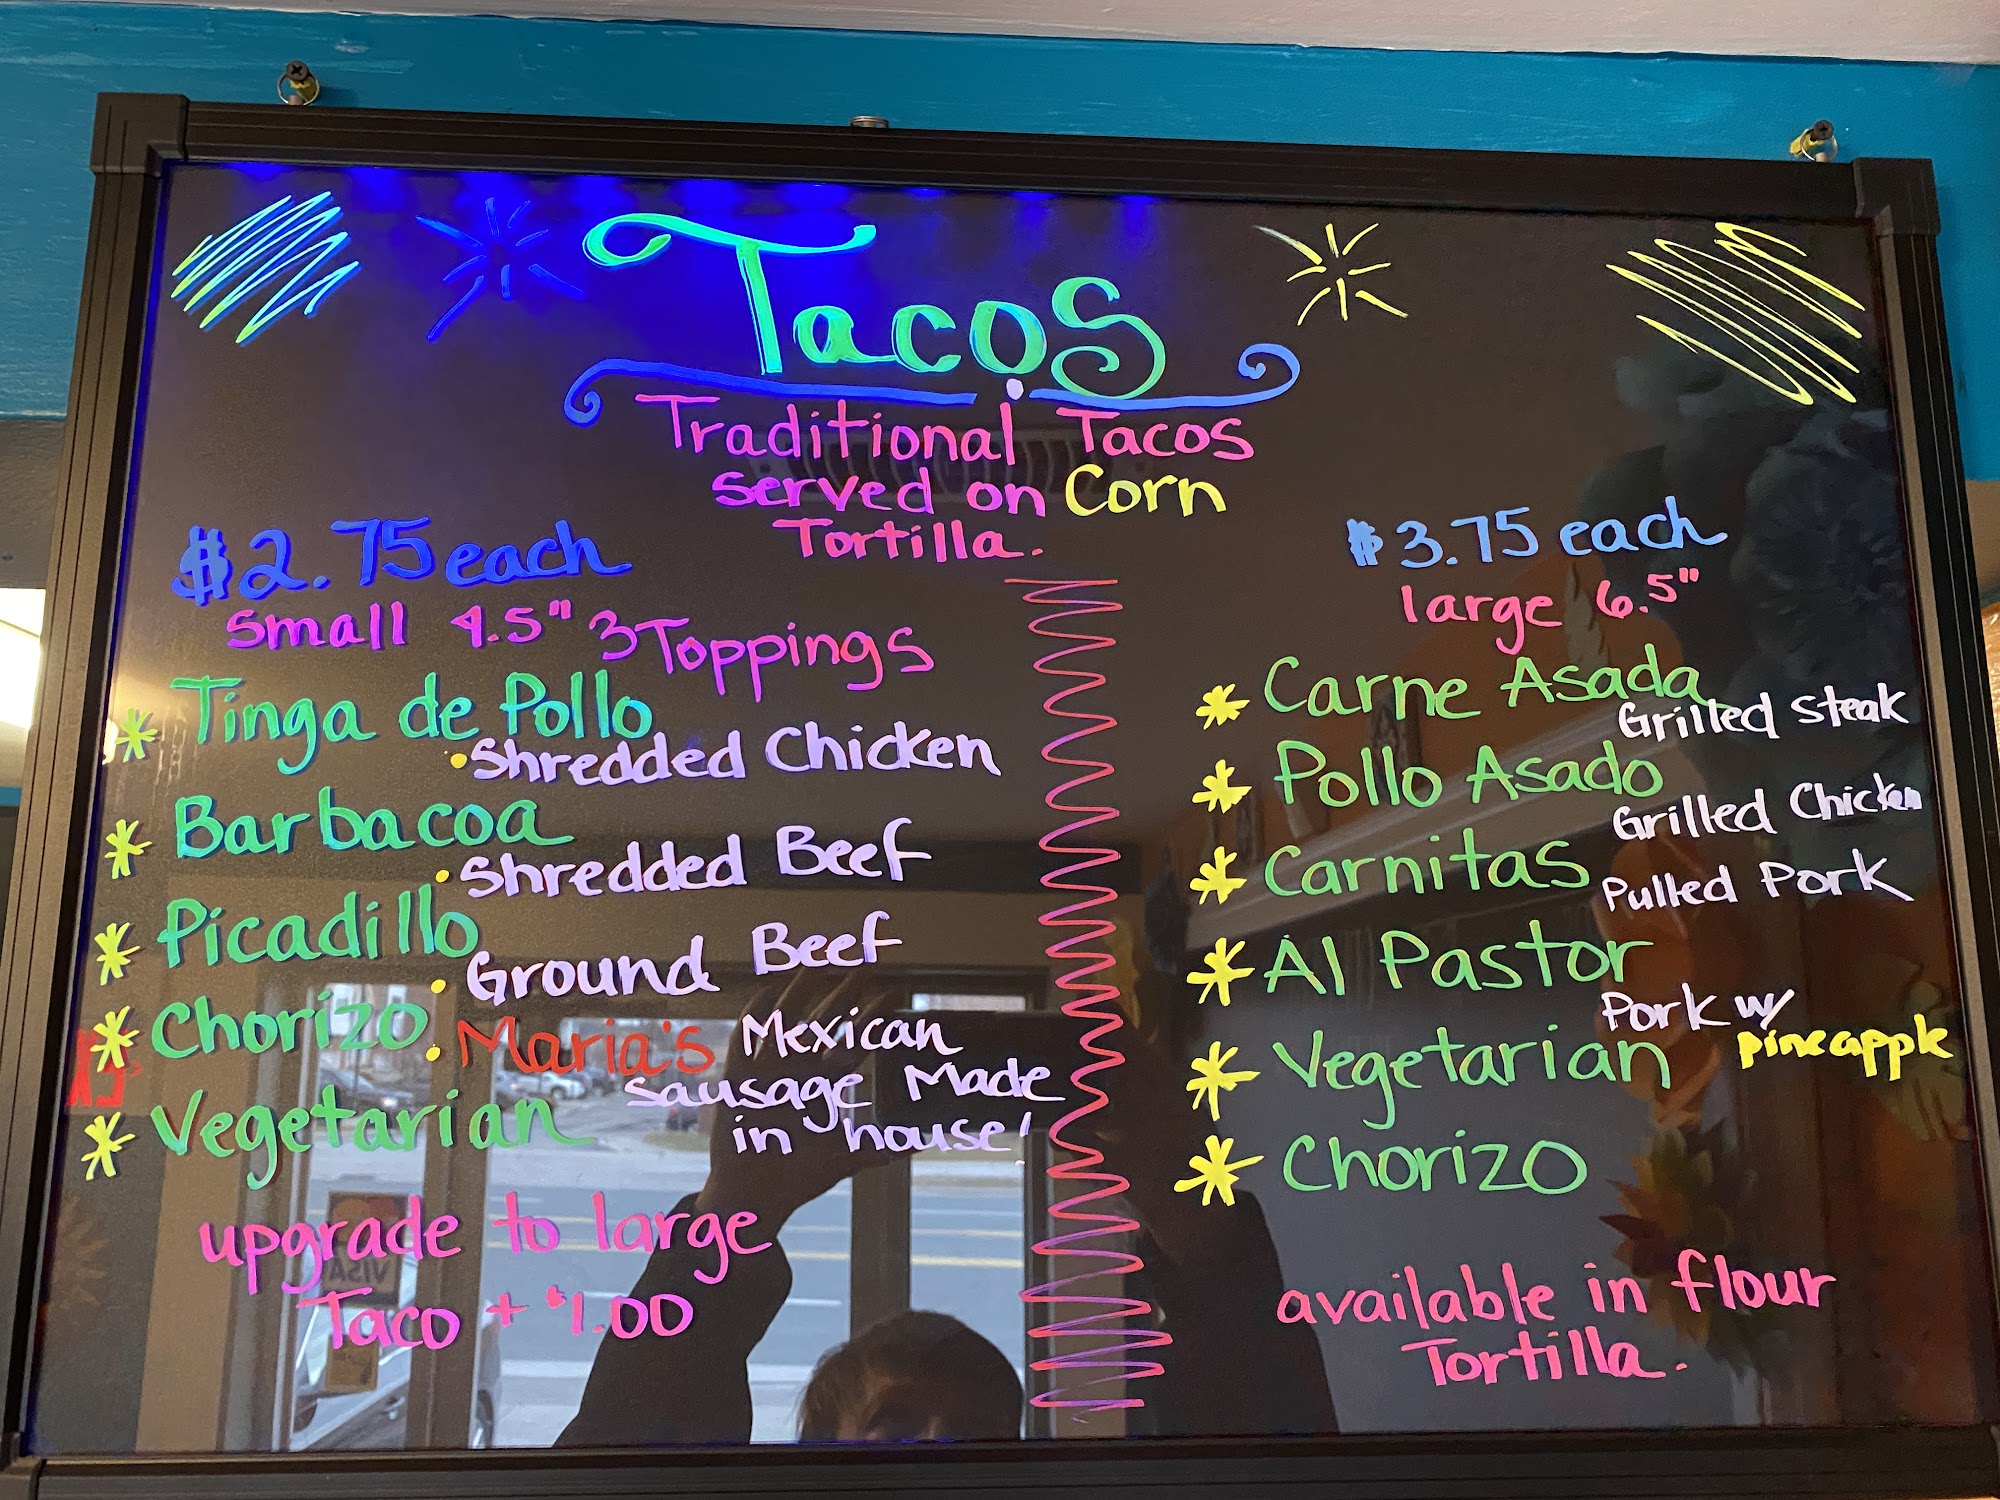 Tacos
Traditional Tacos
served on Corn
Tortilla.
$2.75 each
small 4.5" 3 Toppings
Tinga de Pollo
• Shredded Chicken
Barbacoa
• Shredded Beef
Picadillo
• Ground Beef
Chorizo
• Maria's Mexican
sausage Made
in house!
Vegetarian
upgrade to large
Taco + $1.00
$3.75 each
large 6.5"
Carne Asada
Grilled steak
Pollo Asado
Grilled Chicken
Carnitas
Pulled Pork
Al Pastor
Pork w/
pineapple
Vegetarian
Chorizo
available in flour
Tortilla.
VISA